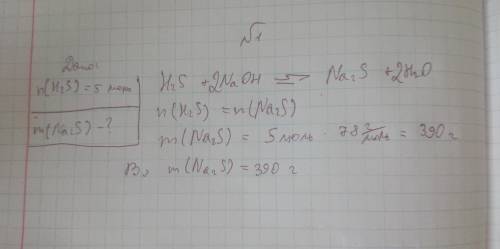 №1
Дано:
n(H₂S) = 5 моль
m(Na₂S) - ?
H₂S + 2NaOH ⇌ Na₂S + 2H₂O
n(H₂S) = n(Na₂S)
m(Na₂S) = 5 моль · 78 г/моль = 390 г
В: m(Na₂S) = 390 г